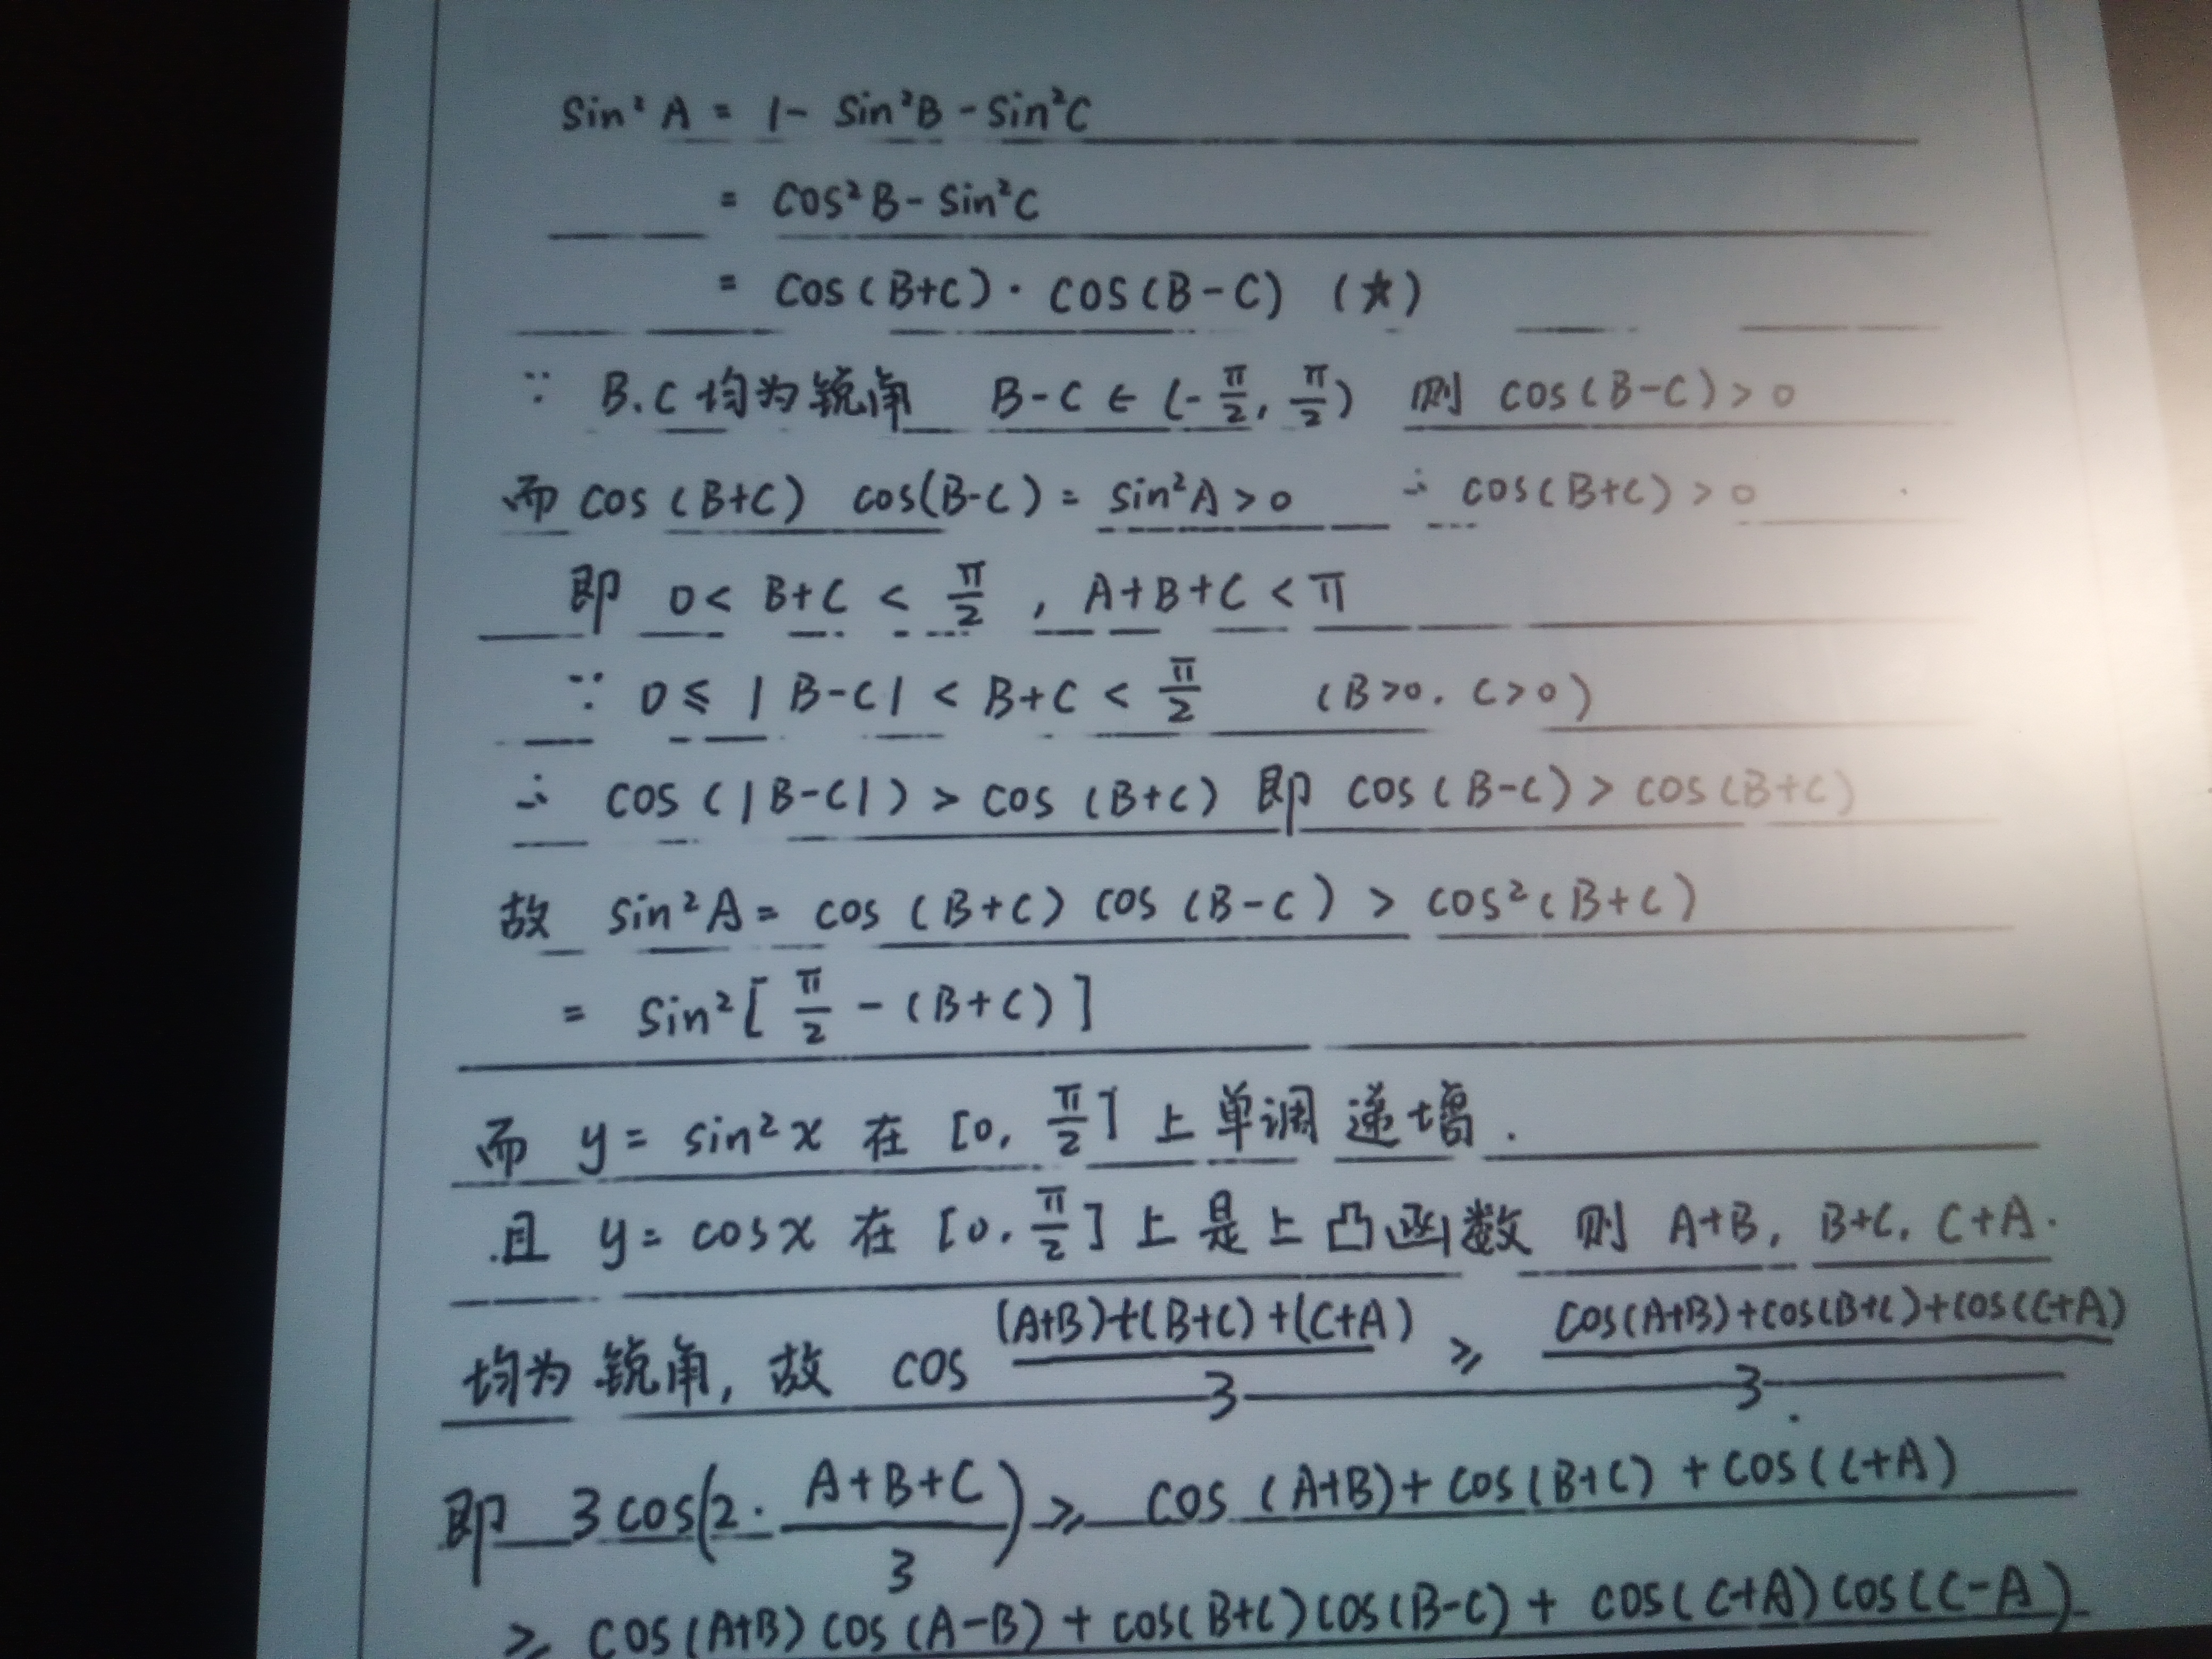 sin²A = 1 - sin²B - sin²C
= cos²B - sin²C
= cos(B+C)·cos(B-C) (★)
∵ B.C均为锐角 B-C∈(-π/2, π/2) 则 cos(B-C)>0
而 cos(B+C) cos(B-C) = sin²A>0 ∴ cos(B+C)>0
即 0< B+C < π/2 , A+B+C<π
∵ 0≤ |B-C| < B+C < π/2 (B>0. C>0)
∴ cos(|B-C|) > cos(B+C) 即 cos(B-C)> cos(B+C)
故 sin²A = cos(B+C) cos(B-C) > cos²(B+C)
= sin²[π/2 - (B+C)]
而 y = sin²x 在 [0, π/2] 上单调递增.
且 y = cosx 在 [0, π/2] 上是上凸函数 则 A+B, B+C, C+A.
均为锐角, 故 cos ((A+B)+(B+C)+(C+A))/3 ≥ (cos(A+B)+cos(B+C)+cos(C+A))/3.
即 3cos(2·(A+B+C)/3) ≥ cos(A+B)+cos(B+C)+cos(C+A)
≥ cos(A+B)cos(A-B)+cos(B+C)cos(B-C)+cos(C+A)cos(C-A)